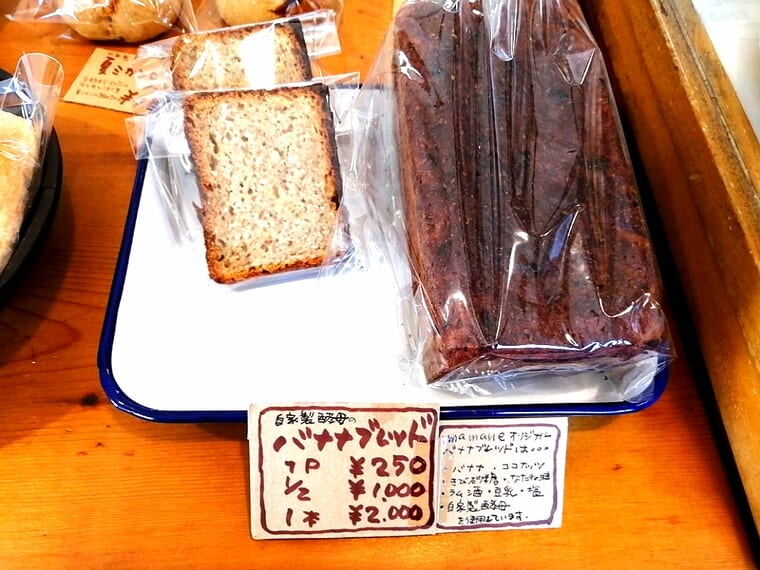 夏ミカ
自家製酵母の
バナナブレッド
1P ¥250
1/2 ¥1,000
1本 ¥2,000
オリジナル
バナナブレッドは。。。
・バナナ・ココナッツ
・きび砂糖・なたね油
・ラム酒・豆乳・塩
・自家製酵母
を使用しています。